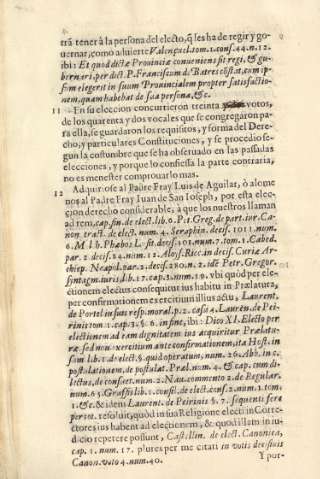 trà tener à la persona del electo, q̃ les ha de regir y go-
uernar, como aduierte Valençuel. tom. 1. cons. 44. n. 12.
ibi: Et quod dictæ Prouinciæ conueniens sit regi, & gu-
bernari, per dict. P. Franciscum de Batres cõstat, cum ip-
sum elegerit in suum Prouincialem propter satisfactio-
nem, quam habebat de sua persona, &c.
11 En su eleccion concurrieron treinta votos,
de los quarenta y dos vocales que se congregaron pa-
ra ella, se guardaron los requisitos, y forma del Dere-
cho, y particulares Constituciones, y se procediò se-
gun la costumbre que se ha obseruado en las passadas
elecciones, y porque lo confiessa la parte contraria,
no es menester comprouarlo mas.
12 Adquiriose al Padre Fray Luis de Aguilar, ò alome
nos al Padre Fray Iuan de San Ioseph, por esta elec-
cion derecho considerable, à que los nuestros llaman
ad rem, cap. fin. de elect. lib. 6. P. 1. Greg. de port. iur. Ca-
non tract. de elect. num. 4. Seraphin. decis. 1011. num.
6. M. l. b. Phæbo 1. sit decis. 101. num. 7. tom. 1. Cabed.
par. 2. decis. 84. num. 12. Aloys. Ricc. in decis. Curiæ Ar-
chiep. Neap. 1. par. 2. decis. 280. n. 2. idẽ Petr. Gregor.
syntagm. iuris, lib. 17. cap. 2. num. 19. vbi quòd per ele-
ctionem electus consequitur ius habitu in Prælatura,
per confirmationem exercitium illius actu, Laurent.
de Portel in suis resp. moral. p. 2. casu 4. Lauren. de Pei-
rinis tom. 1. cap. 3. §. 6. in fine, ibi: Dico XI. Electo per
electionem ad eam dignitatem ius acquiritur Prælatu-
ræ sed non exercitium ante confirmationem, ita Host. in
sum. lib. 1. de elect. §. quid operatur, num. 26. Abb. in c.
postulationem, de postulat. Præl. num. 4. & cap. cum di-
lectus, de consuet. num. 2. Nau. commento 2. de Regular.
num. 65. Grassis lib. 1. consil. de elect. cons. 2. num. 1. tom.
1. &c. & idem Laurent. de Peirinis §. 7. sequenti ferè
per tot. resoluit, quòd in sua Religione electi in Corre-
ctores ius habent ad electionem, & quòd illam in iu-
dicio repetere possunt, Castellin. de elect. Canonica,
cap. 1. num. 17. plures per me citati in votis decisiuis
Canon. voto 4. num. 40.
Y por-